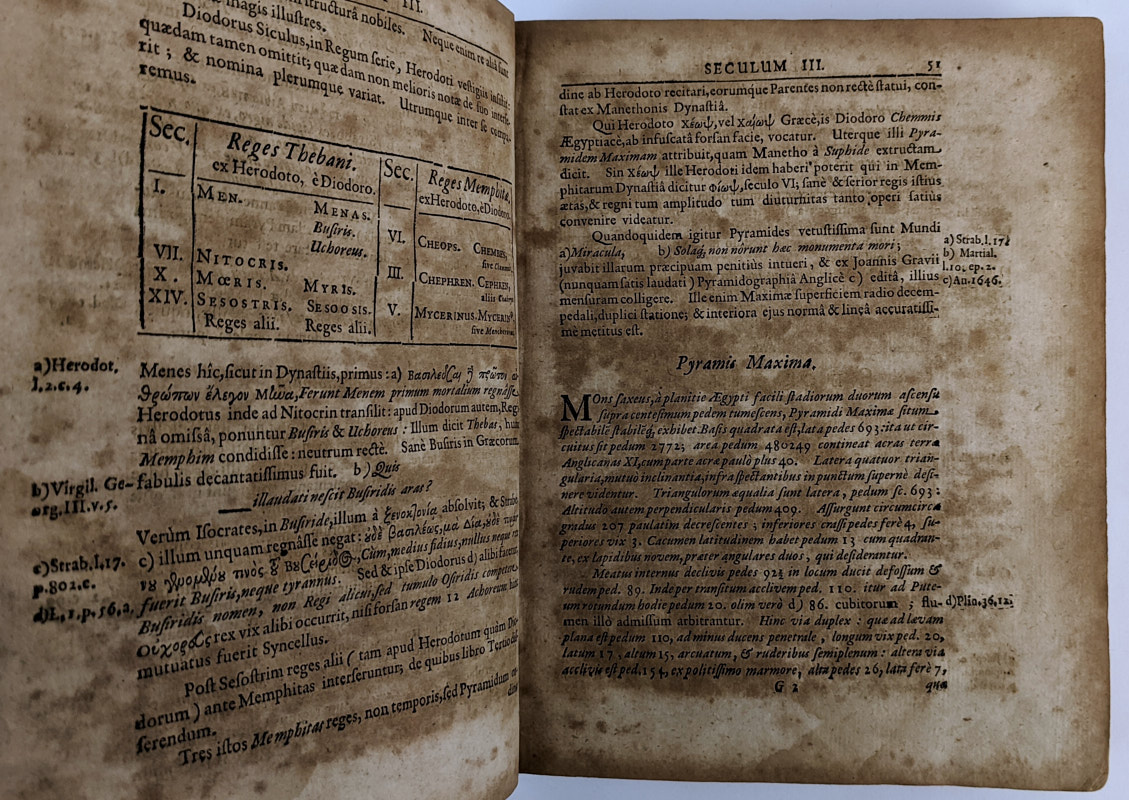 III.
magis illustres.
structurâ nobiles. Neque enim re aliâ sunt
Diodorus Siculus, in Regum serie, Herodoti vestigiis insistit:
quædam tamen omittit; quædam non melioris notæ de suo inserit
rit; & nomina plerumque variat. Utrumque inter se
remus.
Sec. Reges Thebani. Sec. Reges Memphitæ,
ex Herodoto, è Diodoro. ex Herodoto, è Diodoro.
I. MEN. MENAS. VI. CHEOPS. CHEMBES,
Busiris. sive
Uchoreus. III. CHEPHREN. CEPHREN,
VII. NITOCRIS. aliis
X. MŒRIS. MYRIS. V. MYCERINUS. MYCERIN9,
XIV. SESOSTRIS. SESOOSIS. sive
Reges alii. Reges alii.
a) Herodot. Menes híc, sicut in Dynastiis, primus: a)
l, 2. c. 4. Ferunt Menem primum mortalium regnâsse,
Herodotus inde ad Nitocrin transilit: apud Diodorum autem, Reg-
nâ omissâ, ponuntur Busiris & Uchoreus: Illum dicit Thebas, hunc
Memphim condidisse: neutrum rectè. Sanè Busiris in Græcorum
b) Virgil. Ge- fabulis decantatissimus fuit. b) Quis
org. III. v. 5. illaudati nescit Busiridis aras?
Verùm Isocrates, in Busiride, illum à ξενοκτονία absolvit; & Strabo
c) Strab. l. 17. c) illum unquam regnâsse negat:
p. 802. c. Cùm, medius fidius, nullus neque rex
fuerit Busiris, neque tyrannus. Sed & ipse Diodorus d) alibi fatetur,
d) L. 1, p. 56. Busiridis nomen, non Regi alicui, sed tumulo Osiridis
rex vix alibi occurrit, nisi forsan regem 12 Achoreum
mutuatus fuerit Syncellus.
Post Sesostrim reges alii (tam apud Herodotum quàm Dio-
dorum) ante Memphitas interseruntur; de quibus libro Tertio
serendum.
Tres istos Memphitas reges, non temporis, sed Pyramidum
SECULUM III. 51
dine ab Herodoto recitari, eorumque Parentes non rectè statui, con-
stat ex Manethonis Dynastiâ.
Qui Herodoto Χέωψ, vel Χαίωψ Græcè, is Diodoro Chemmis
Ægyptiacè, ab infuscatâ forsan facie, vocatur. Uterque illi Pyra-
midem Maximam attribuit, quam Manetho à Suphide extructam
dicit. Sin Χέωψ ille Herodoti idem haberi poterit qui in Mem-
phitarum Dynastiâ dicitur Φίωψ, seculo VI; sanè & serior regis istius
ætas, & regni tum amplitudo tum diuturnitas tanto operi satius
convenire videatur.
Quandoquidem igitur Pyramides vetustissima sunt Mundi
a) Miracula, b) Solaq́, non nôrunt hæc monumenta mori;
juvabit illarum præcipuam penitiùs intueri, & ex Joannis Gravii
(nunquam satis laudati) Pyramidographiâ Anglicè c) editâ, illius
mensuram colligere. Ille enim Maximæ superficiem radio decem-
pedali, duplici statione; & interiora ejus normâ & lineâ accuratissi-
mè metitus est.
a) Strab. l. 17.
b) Martial.
l. 10. ep. 2.
c) An. 1646.
Pyramis Maxima.
MOns saxeus, à planitie Ægypti facili stadiorum duorum ascensu
supra centesimum pedem tumescens, Pyramidi Maximæ situm
spectabilē stabilēq́, exhibet. Basis quadrata est, lata pedes 693: ita ut cir-
cuitus sit pedum 2772; area pedum 480249 contineat acras terræ
Anglicanas XI, cum parte acræ paulò plus 40. Latera quatuor trian-
gularia, mutuo inclinantia, infra spectantibus in punctum supernè desi-
nere videntur. Triangulorum æqualia sunt latera, pedum sc. 693:
Altitudo autem perpendicularis pedum 409. Assurgunt circumcirca
gradus 207 paulatim decrescentes; inferiores crassi pedes ferè 4, su-
periores vix 3. Cacumen latitudinem habet pedum 13 cum quadran-
te, ex lapidibus novem, præter angulares duos, qui desiderantur.
Meatus internus declivis pedes 92½ in locum ducit defossum &
rudem ped. 89. Inde per transitum acclivem ped. 110. itur ad Pute-
um rotundum hodie pedum 20. olim verò d) 86. cubitorum; flu- d) Plin. 36, 12.
men illò admissum arbitrantur. Hinc via duplex: quæ ad lævam
plana est pedum 110, ad minus ducens penetrale, longum vix ped. 20,
latum 17, altum 15, arcuatum, & ruderibus semiplenum: altera via
acclivis est ped. 154, ex politissimo marmore, alta pedes 26, lata ferè 7,
G 2 quæ